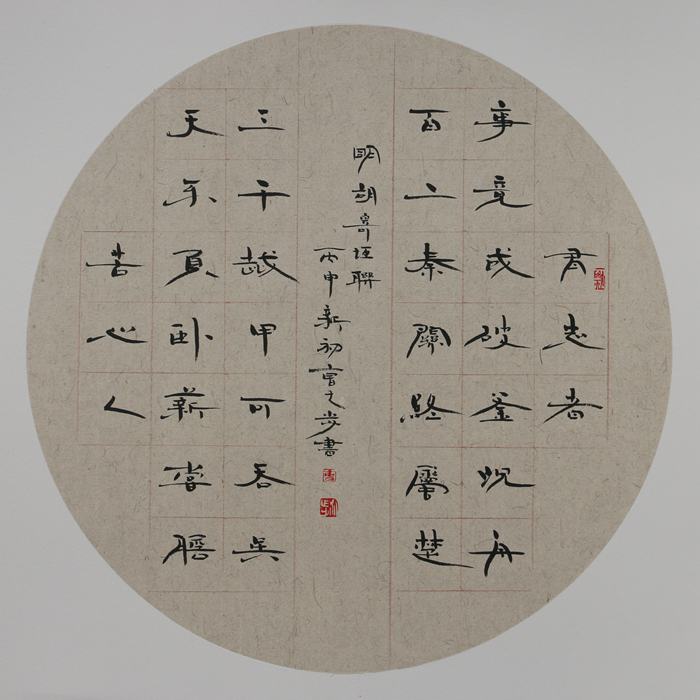 有志者
事竟成破釜沉舟
百二秦關終屬楚
明胡寄垣聯
丙申新初之步書
三千越甲可吞吳
天不負卧薪嘗膽
苦心人